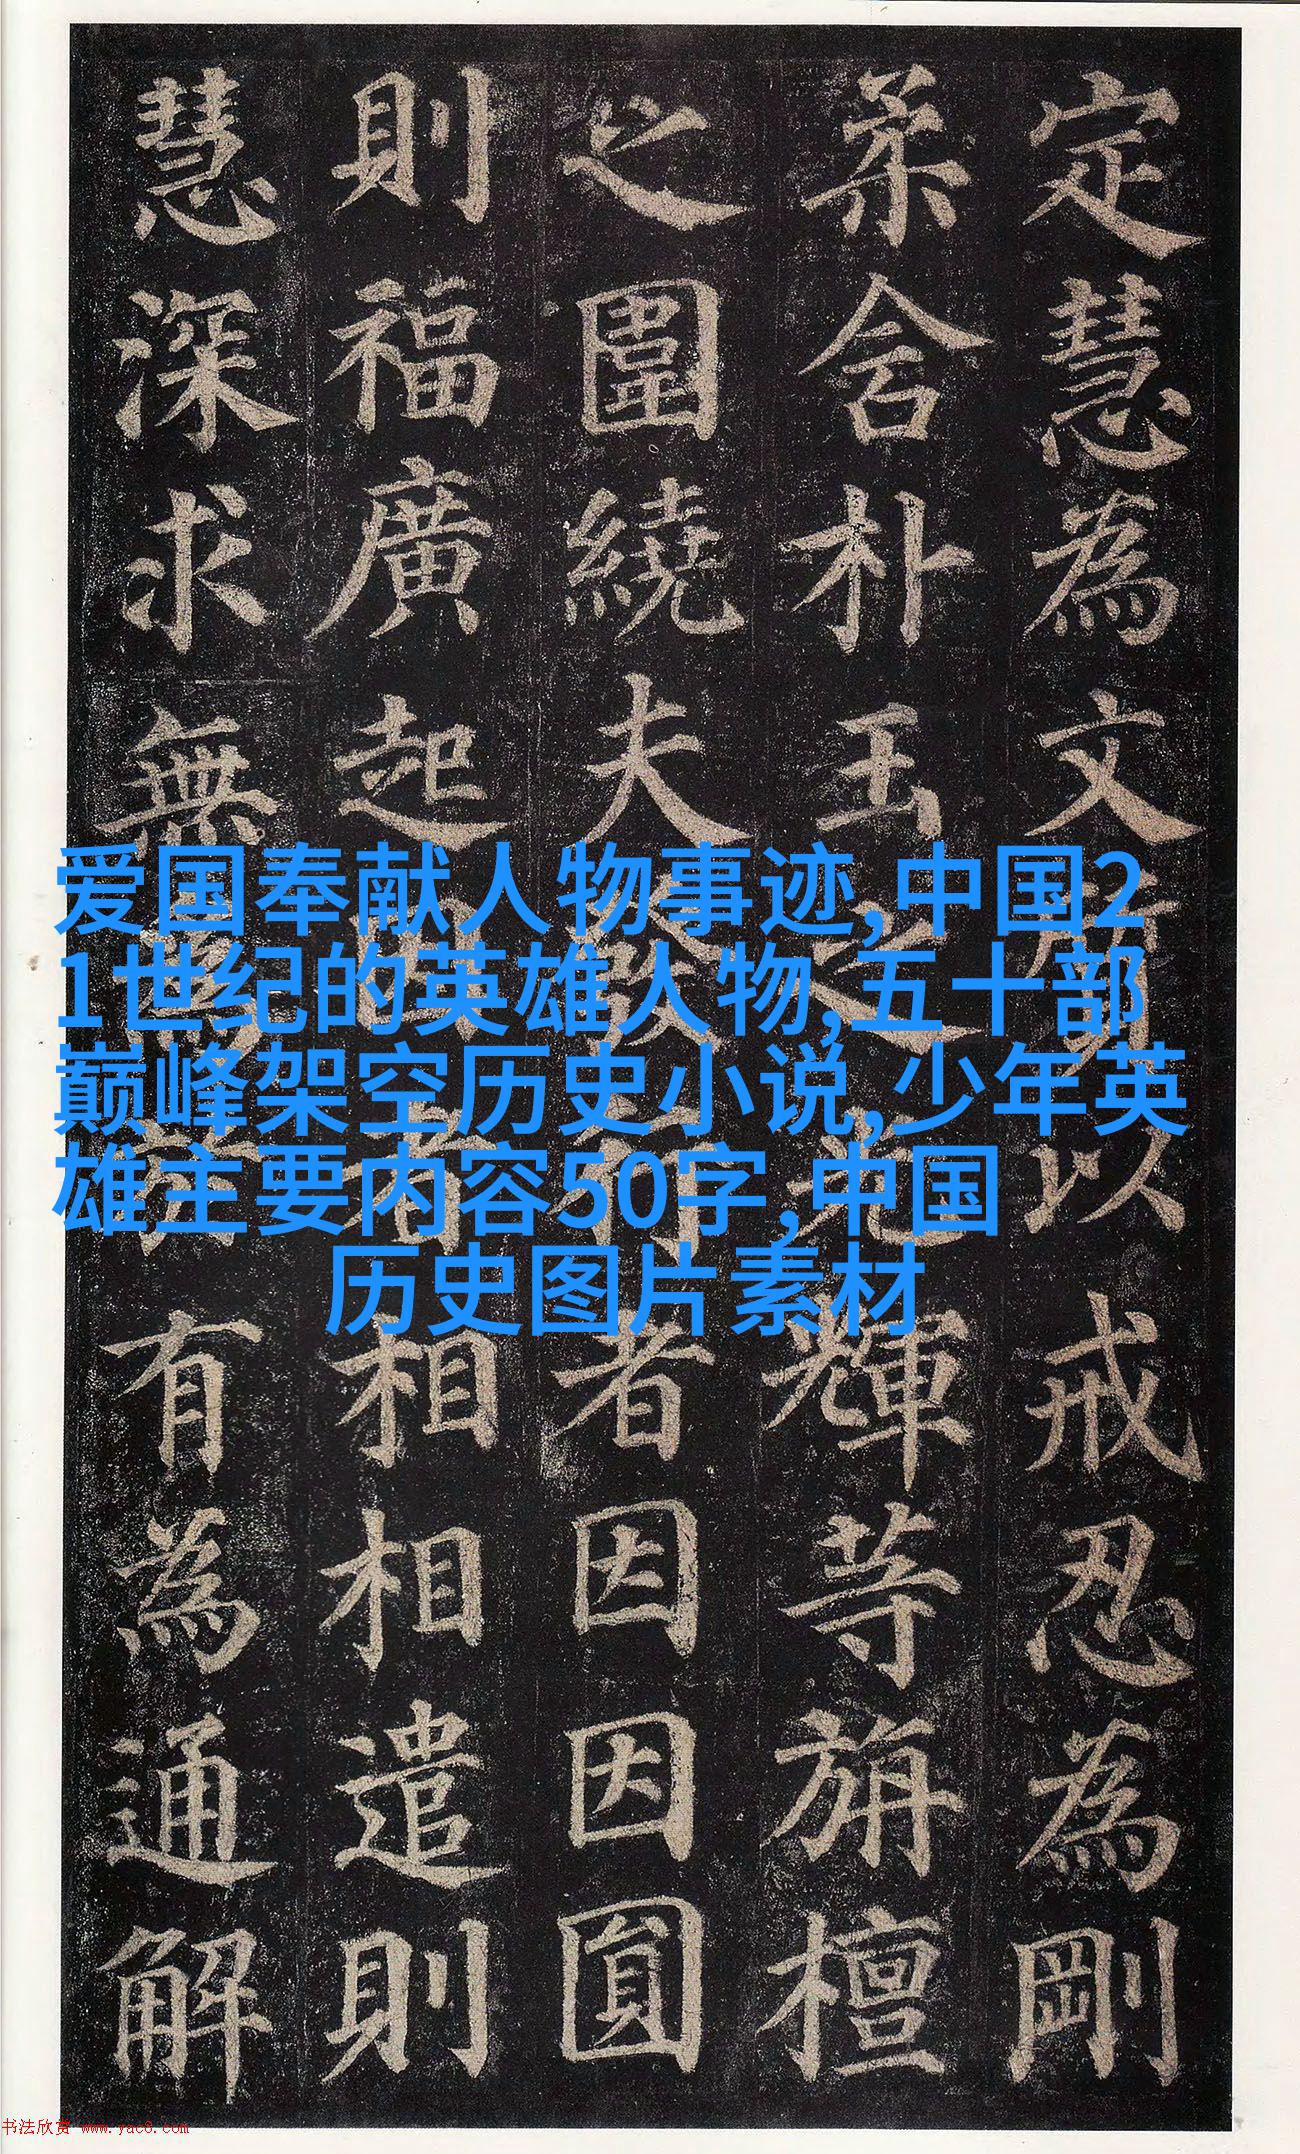 定慧為文質以戒忍為剛
柔含朴玉之光輝等旃檀
之圍繞夫發行者因因圓
則福廣起因者相相遣則
慧深求無為於有為通解
爱国奉献人物事迹,中国2
1世纪的英雄人物,五十部
巅峰架空历史小说,少年英
雄主要内容50字,中国
历史图片素材
书法欣赏 www.yac8.com